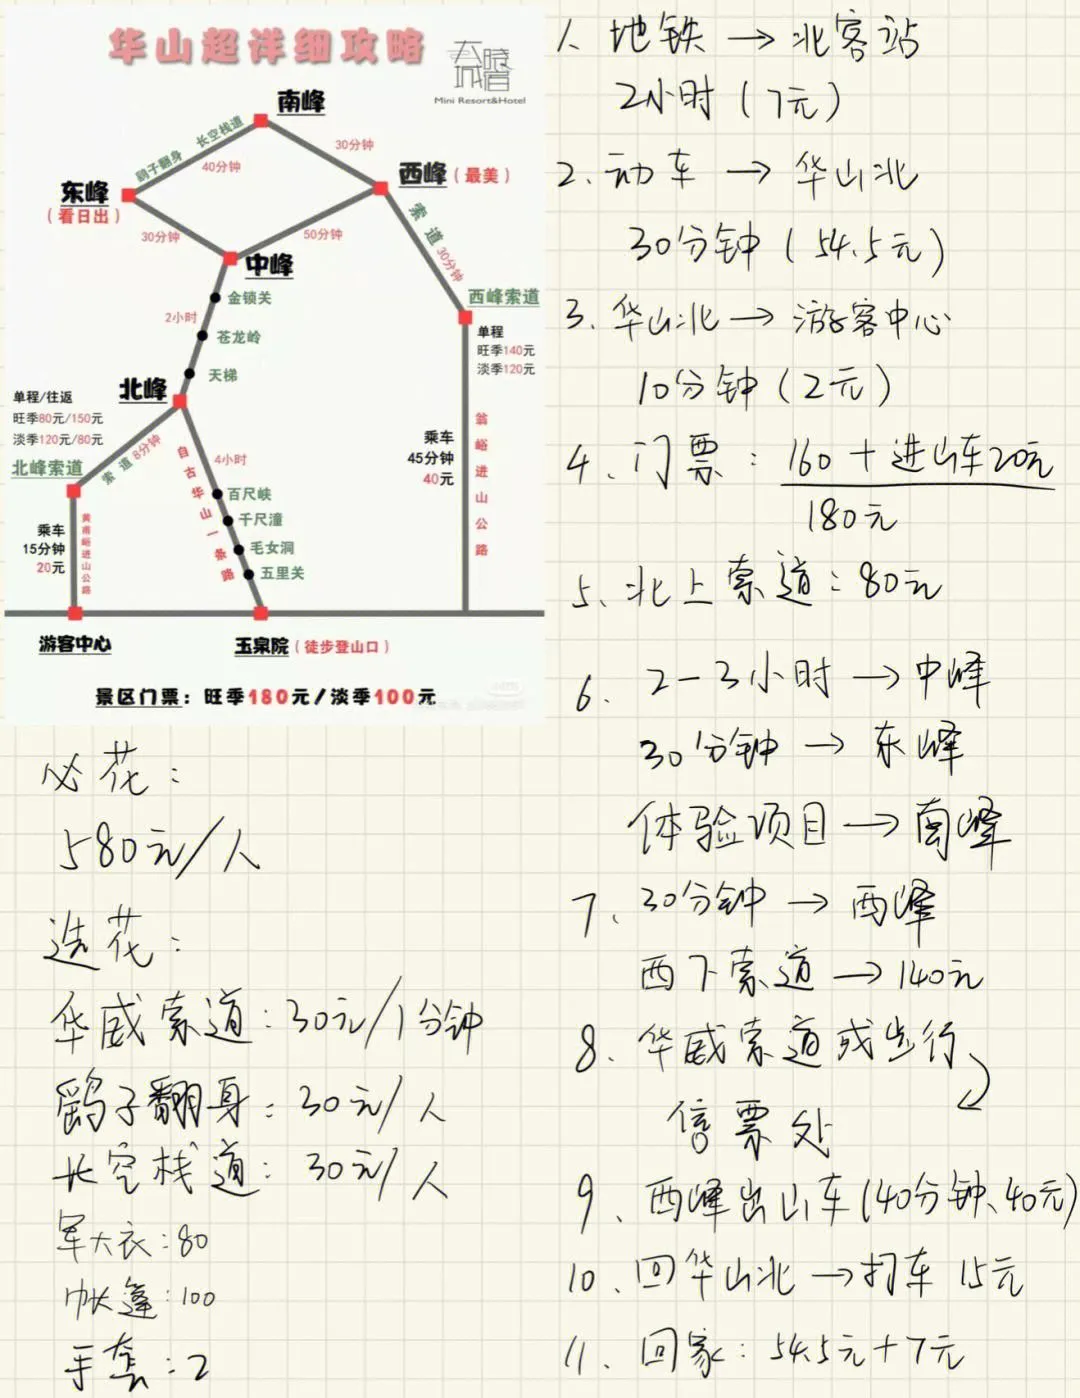 华山超详细攻略
Mini Resort&Hotel
南峰
鹞子翻身 长空栈道
40分钟
30分钟
东峰
(看日出)
西峰(最美)
30分钟
50分钟
索道30分钟
中峰
金锁关
2小时
苍龙岭
天梯
西峰索道
单程
旺季140元
淡季120元
北峰
单程/往返
旺季80元/150元
淡季120元/80元
索道8分钟
北峰索道
自古华山一条路
4小时
百尺峡
千尺潼
毛女洞
五里关
乘车
45分钟
40元
翁峪进山公路
乘车
15分钟
20元
黄甫峪进山公路
游客中心
玉泉院(徒步登山口)
景区门票：旺季180元/淡季100元
必花：
580元/人
选花：
华威索道：30元/1分钟
鹞子翻身：30元/人
长空栈道：30元/人
军大衣：80
帐篷：100
手套：2
1、地铁→北客站
2小时(7元)
2、动车→华山北
30分钟(54.5元)
3、华山北→游客中心
10分钟(2元)
4、门票：160+进山车20元
180元
5、北上索道：80元
6、2-3小时→中峰
30分钟→东峰
体验项目→南峰
7、30分钟→西峰
西下索道→140元
8、华威索道或步行
售票处
9、西峰出山车(40分钟、40元)
10、回华山北→打车15元
11、回家：54.5元+7元